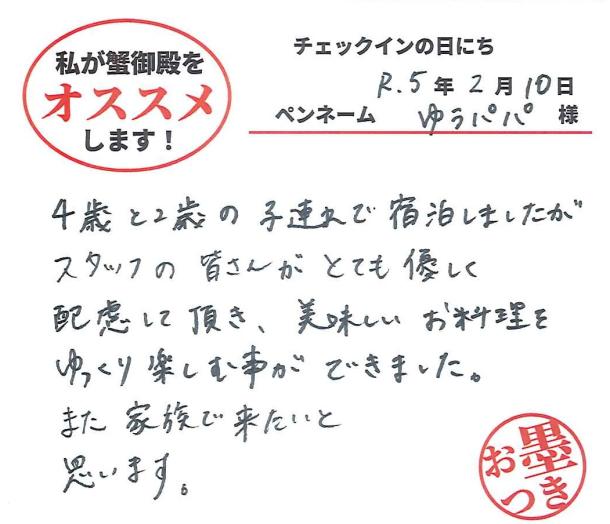 私が蟹御殿を
オススメ
します！
チェックインの日にち
R.5年2月10日
ペンネーム ゆうパパ 様
4歳と2歳の子連れで宿泊しましたが
スタッフの皆さんがとても優しく
配慮して頂き、美味しいお料理を
ゆっくり楽しむ事ができました。
また家族で来たいと
思います。
お墨
つき